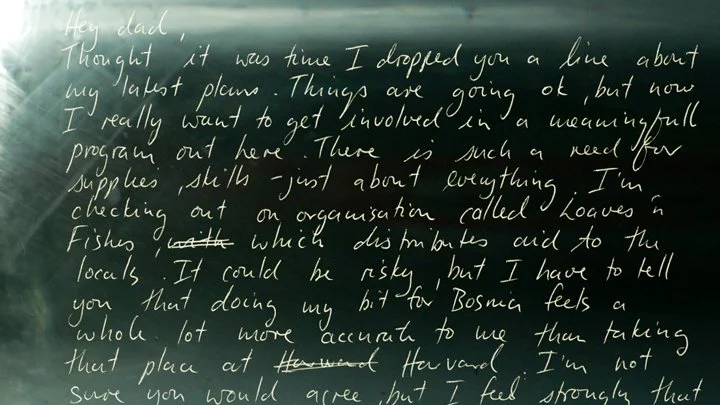 Hey dad,
Thought it was time I dropped you a line about
my latest plans. Things are going ok, but now
I really want to get involved in a meaningfull
program out here. There is such a need for
supplies, skills - just about everything. I'm
checking out an organisation called Loaves n
Fishes, with which distributes aid to the
locals. It could be risky, but I have to tell
you that doing my bit for Bosnia feels a
whole lot more accurate to me than taking
that place at Harward Harvard. I'm not
sure you would agree, but I feel strongly that